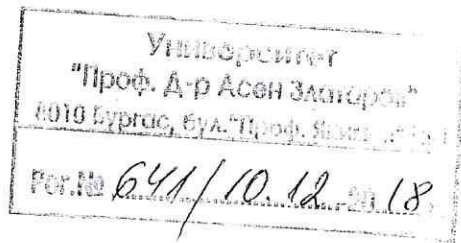 Университет
"Проф. д-р Асен Златаров"
8010 Бургас, бул. "Проф. Якимов"
Рег.№ 641/10.12.2018